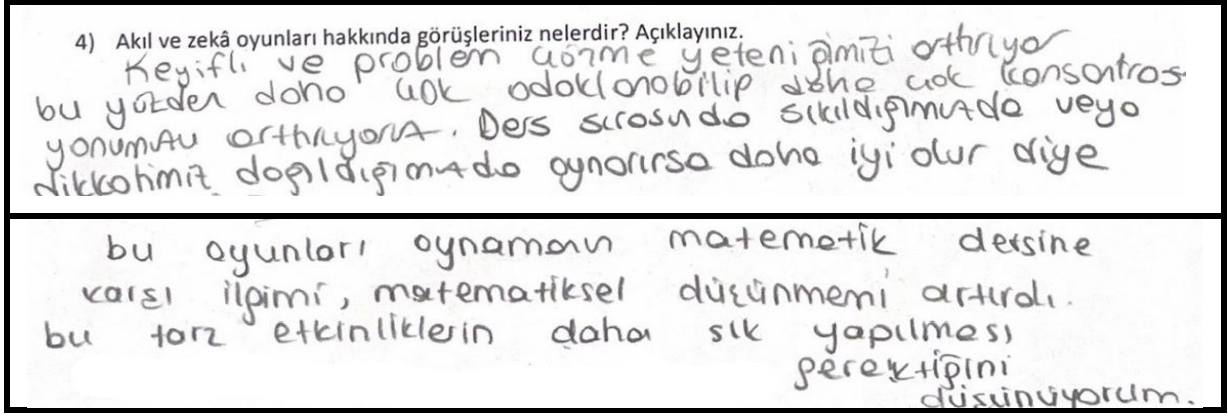 4) Akıl ve zekâ oyunları hakkında görüşleriniz nelerdir? Açıklayınız.
Keyifli ve problem çözme yeteniğimizi arttırıyor
bu yüzden daha çok odaklanabilip daha çok konsantras
yonumuzu arttırıyoruz. Ders sırasında sıkıldığımızda veya
dikkatimiz dağıldığımızda oynanırsa daha iyi olur diye
bu oyunları oynamanın matematik dersine
karşı ilgimi, matematiksel düşünmemi artırdı.
bu tarz etkinliklerin daha sık yapılması
gerektiğini
düşünüyorum.